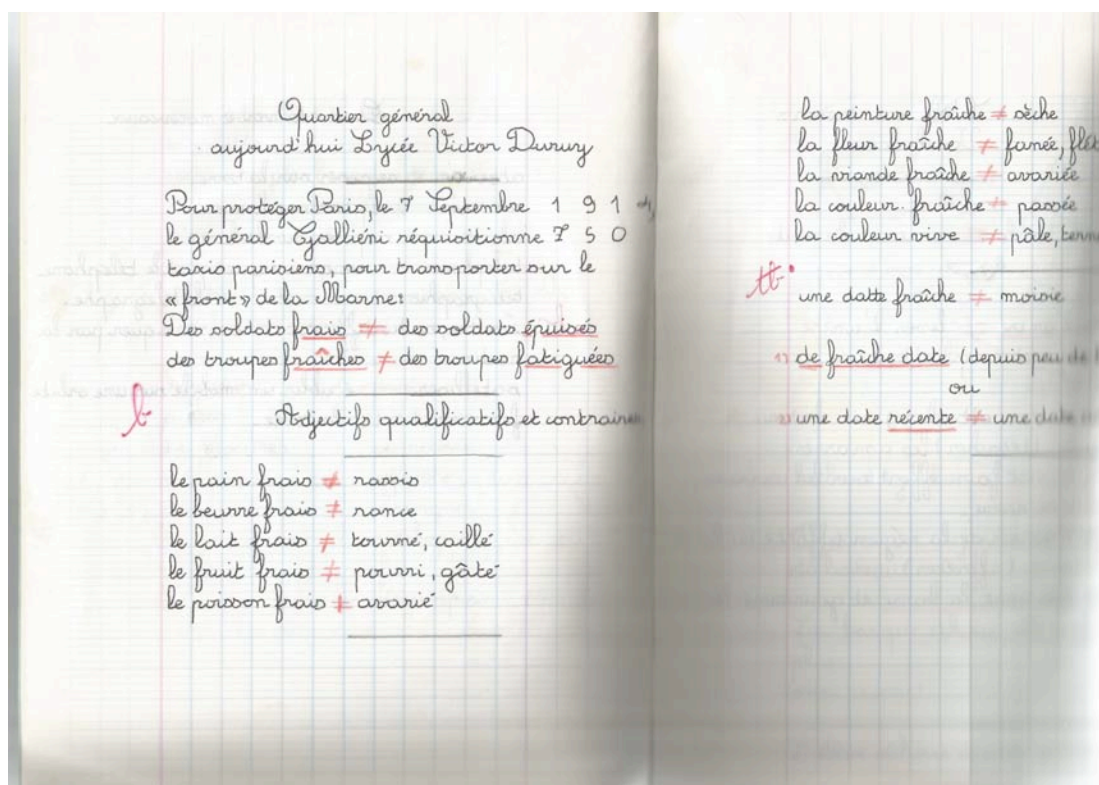 Quartier général
aujourd'hui Lycée Victor Duruy
Pour protéger Paris, le 7 Septembre 1 9 1 4,
le général Galliéni réquisitionne 7 5 0
taxis parisiens, pour transporter sur le
« front » de la Marne :
Des soldats frais ≠ des soldats épuisés
des troupes fraîches ≠ des troupes fatiguées
b
Adjectifs qualificatifs et contraires
le pain frais ≠ rassis
le beurre frais ≠ rance
le lait frais ≠ tourné, caillé
le fruit frais ≠ pourri, gâté
le poisson frais ≠ avarié
la peinture fraîche ≠ sèche
la fleur fraîche ≠ fanée,
la viande fraîche ≠ avariée
la couleur fraîche ≠ passée
la couleur vive ≠ pâle,
tt.
une datte fraîche ≠ moisie
1) de fraîche date (depuis peu de
ou
2) une date récente ≠ une date